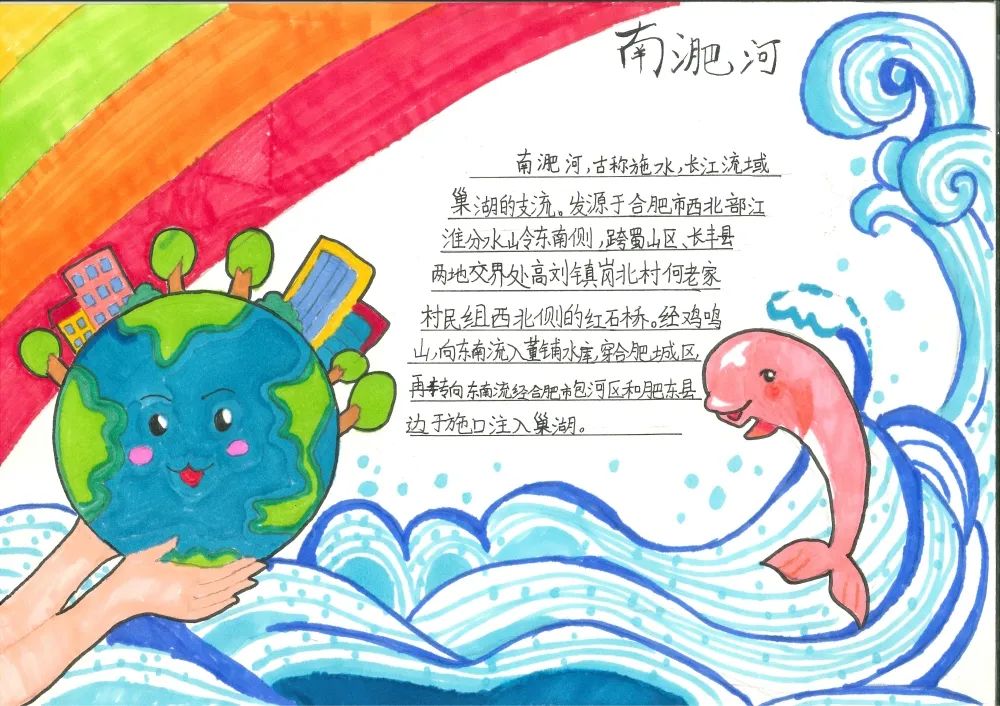 南淝河
南淝河,古称施水,长江流域
巢湖的支流。发源于合肥市西北部江
淮分水山令东南侧,跨蜀山区、长丰县
两地交界处高刘镇岗北村何老家
村民组西北侧的红石桥。经鸡鸣
山,向东南流入董铺水库,穿合肥城区,
再转向东南流经合肥市包河区和肥东县
边于施口注入巢湖。